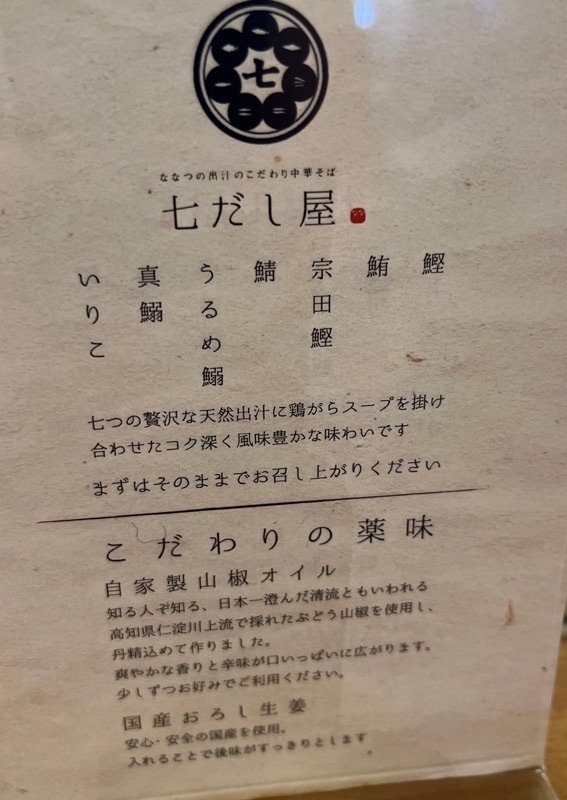 七
ななつの出汁のこだわり中華そば
七だし屋
鰹
鮪
宗田鰹
鯖
うるめ鰯
真鰯
いりこ
七つの贅沢な天然出汁に鶏がらスープを掛け
合わせたコク深く風味豊かな味わいです
まずはそのままでお召し上がりください
こだわりの薬味
自家製山椒オイル
知る人ぞ知る、日本一澄んだ清流ともいわれる
高知県仁淀川上流で採れたぶどう山椒を使用し、
丹精込めて作りました。
爽やかな香りと辛味が口いっぱいに広がります。
少しずつお好みでご利用ください。
国産おろし生姜
安心・安全の国産を使用。
入れることで後味がすっきりとします